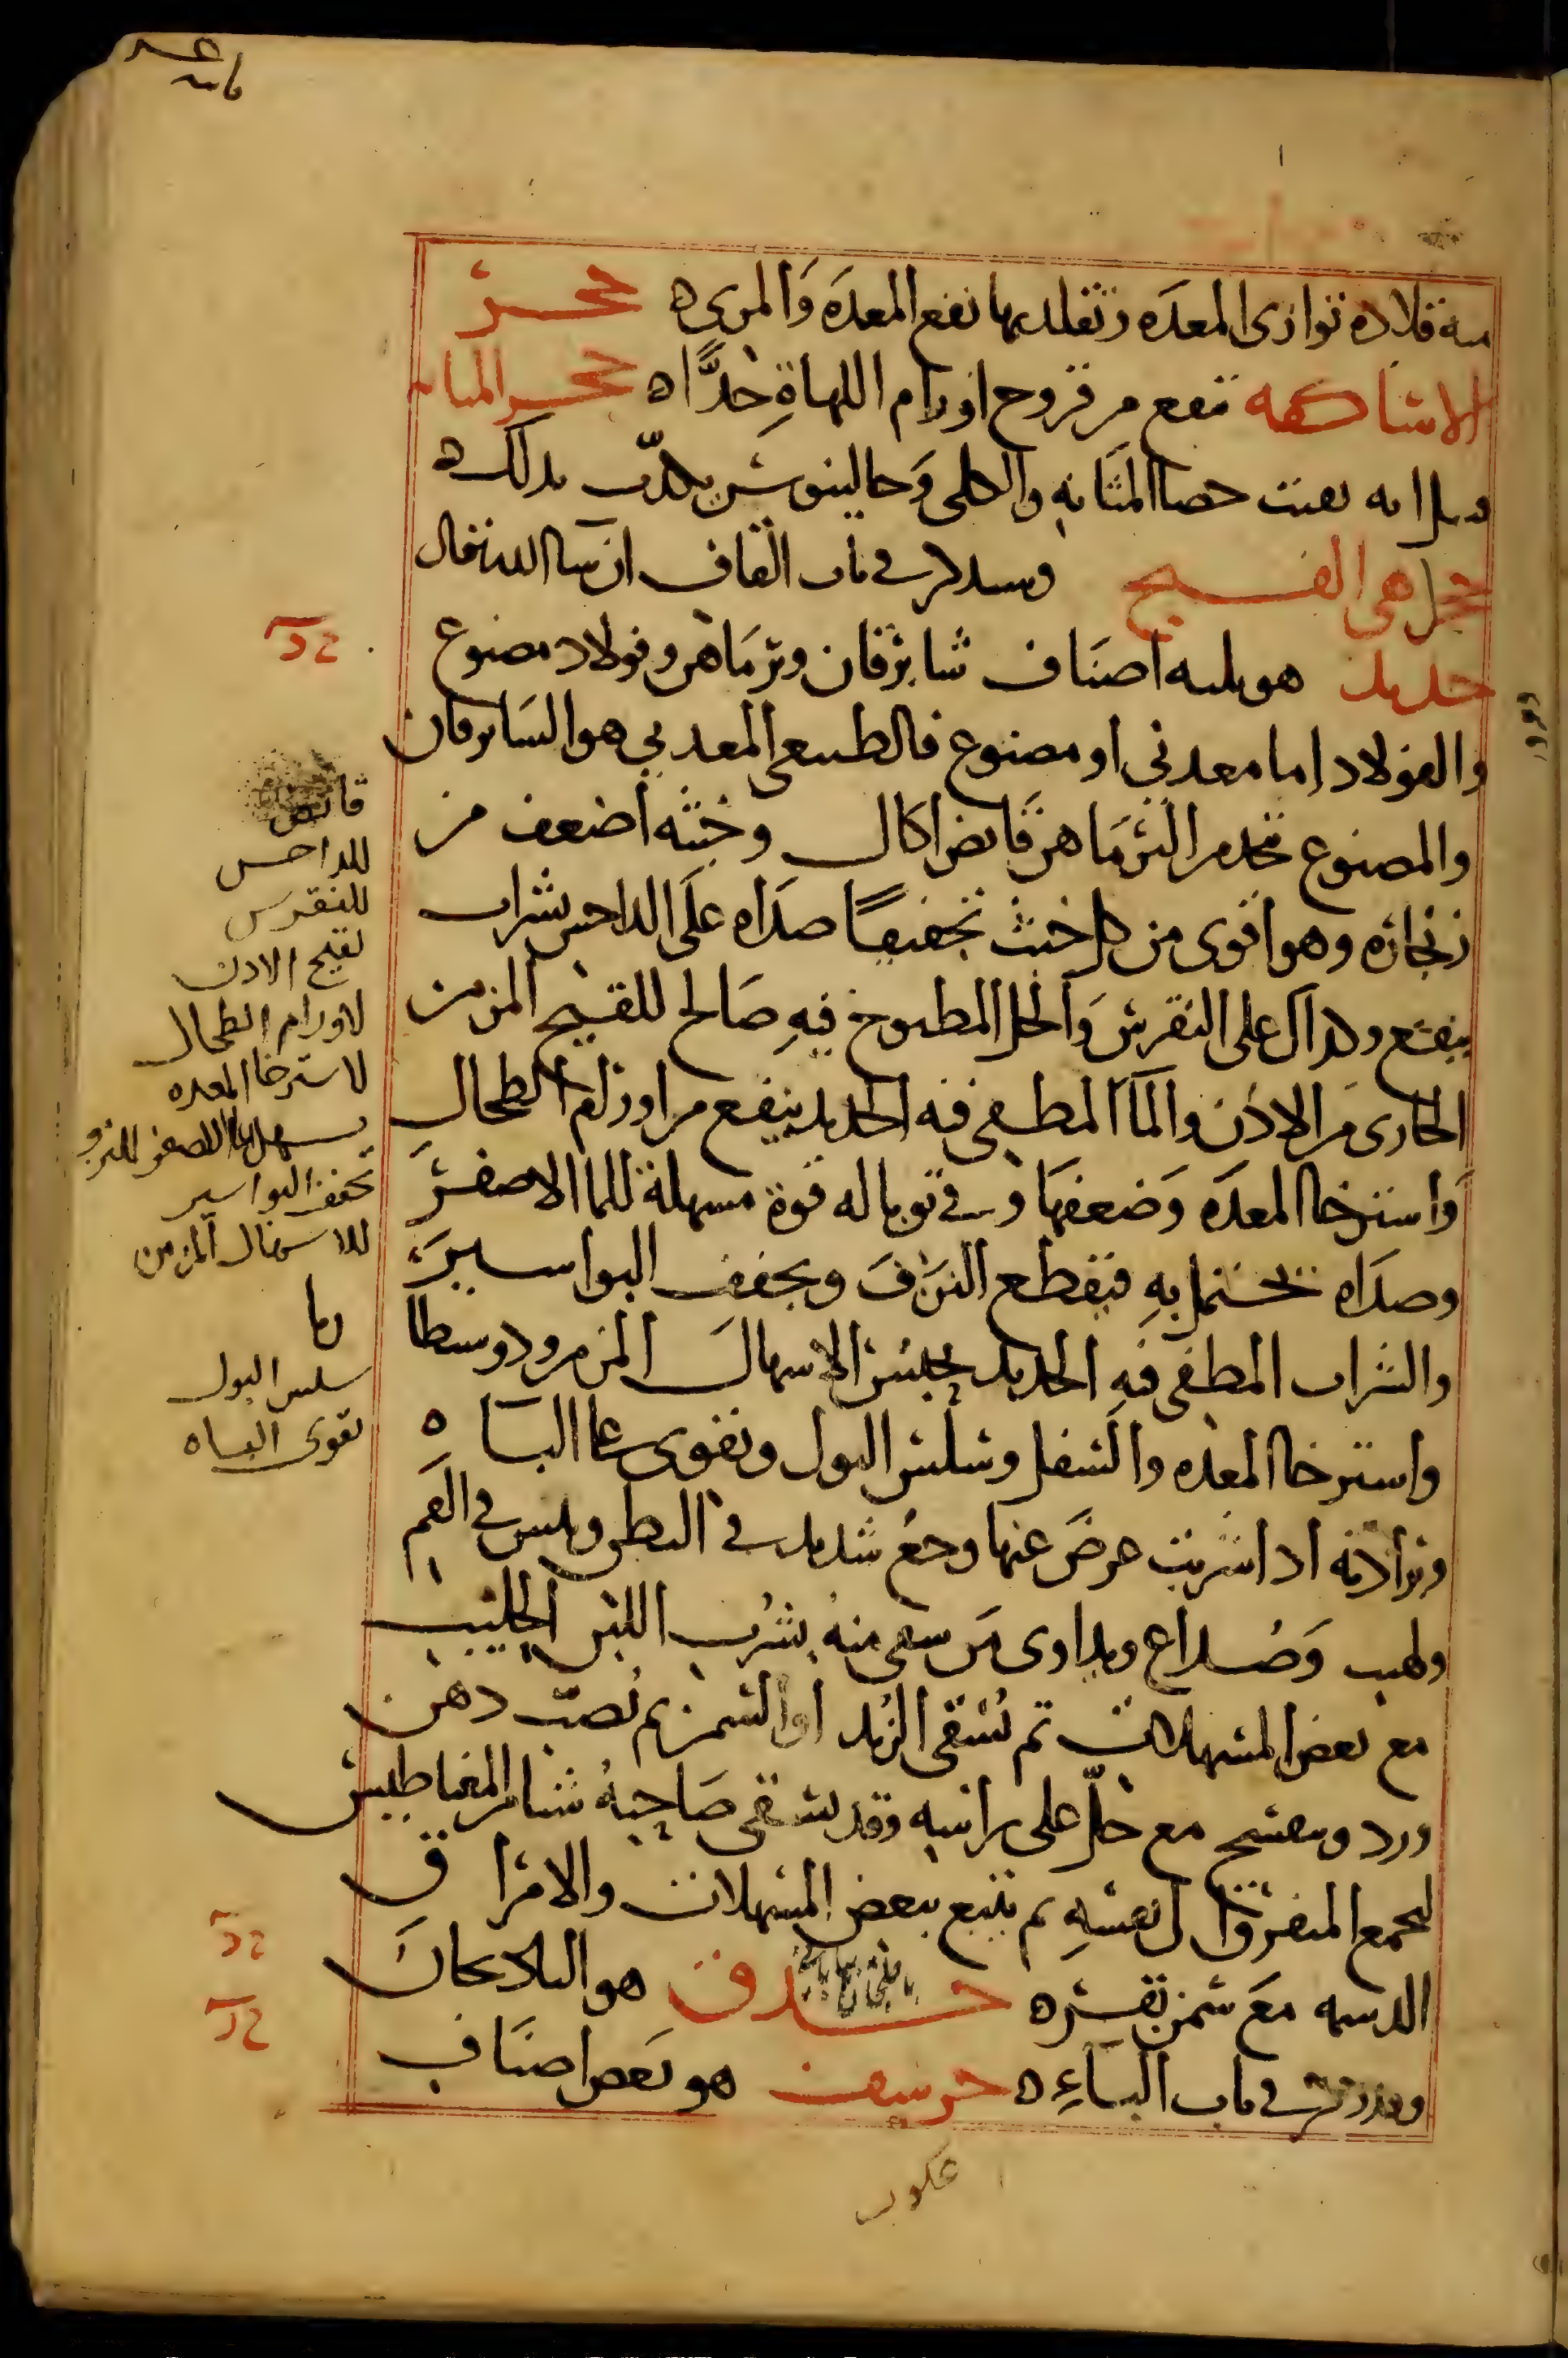 منه قلادة توازى المعدَه وتقلد بها نفع المعدَه وَالمرى ه حجر
الاساكفه تنفع من قروح اورام اللهاةِ جدًّا ه حجر المثانه
قيل انه يفتت حصا المثانهِ والكلى وَجالينوس يكذّب بذلك ه
حجر اهى القبيح وسيذكر فى باب القاف ان شا الله تعالى
حديد هو ثلثه اصنَاف شابرقان ونرمَاهن وفولاد مصنوع
والفولاد اما معدنى او مصنوع فالطبيعى المعدنى هو السابرقان
والمصنوع يتخذ من النرمَاهن قابض اكال وخبثه اضعف من
زنجاره وهو اقوى من كل خبث تجفيفًا صدَاه علَى الداحس بشراب
ينفع وكذاك على النقرس وَالخل المطبوخ فيهِ صَالح للقيح المزمن
الجارى من الاذن والمَا المطفى فيه الحديد ينفع من اورام الطحال
وَاسترخا المعدَه وَضعفهَا وفى توباله قوة مسهلة للما الاصفر
وصدَاه تحتمل بهِ فيقطع النزفَ ويجفف البواسير
والشراب المطفى فيهِ الحديد يحبس الاسهال المزمن ودوسطا
واسترخا المعده والسفل وسلس البول ويقوى على البَاه ه
وبرادته اذا شربت عرضَ عنها وجع شديد فى البطن ويبس فى الفَم
ولهب وَصُداع ويداوى من سقى منهُ بشرب اللبن الحليب
مع بعض المسهلات ثم يُسقى الزبد او السمن ثم يُصب دهن
ورد وبنفسج مع خلّ على راسه وقد يسقى صَاحبهُ شيا من المغناطيس
ليجمع المتفرق الى نفسهِ ثم يتبع ببعض المسهلات والامراق
الدسمه مَع سمن بقر ه حدق هو الباذنجان
وقد ذكر فى باب البَاءِ ه حرشف هو بَعض اصنَاف
قابض
للداحس
للنقرس
لقيح الاذن
لاورام الطحال
لاسترخا المعده
يسهل الما الاصفر للنزف
يجفف البواسير
للاسهال المزمن
سلس البول
يقوى الباه
عكوب